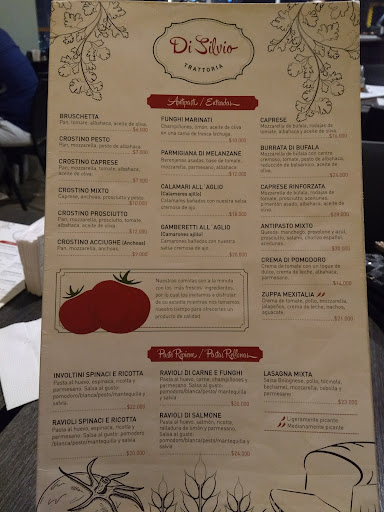 Di Silvio
TRATTORIA
Antipasti / Entradas
BRUSCHETTA
Pan, tomate, albahaca, aceite de oliva.
$6.000
CROSTINO PESTO
Pan, mozzarella, pesto de albahaca.
$7.000
CROSTINO CAPRESE
Pan, mozzarella, tomate, albahaca,
aceite de oliva.
$7.500
CROSTINO MIXTO
Caprese, anchoas, prosciutto y pesto.
$10.000
CROSTINO PROSCIUTTO
Pan, mozzarella, prosciutto, tomate,
albahaca, aceite de oliva.
$12.000
CROSTINO ACCIUGHE (Anchoas)
Pan, mozzarella, anchoas.
$9.000
FUNGHI MARINATI
Champiñones, limón, aceite de oliva
en una cama de fresca lechuga.
$10.000
PARMIGIANA DI MELANZANE
Berenjenas asadas, base de tomate,
mozzarella, parmesano, albahaca.
$12.000
CALAMARI ALL´AGLIO
(Calamares ajillo)
Calamares bañados con nuestra salsa
cremosa de ajo.
$18.000
GAMBERETTI ALL´AGLIO
(Camarones ajillo)
Camarones bañados con nuestra
salsa cremosa de ajo.
$20.000
CAPRESE
Mozzarella de búfala, rodajas de
tomate, albahaca y aceite de oliva.
BURRATA DI BUFALA
Mozzarella de búfala con centro
cremoso, tomate, pesto de albahaca,
reducción de balsámico, aceite de oliva.
CAPRESE RINFORZATA
Mozzarella de búfala, rodajas de
tomate, prosciutto, aceitunas,
pimentón asado, albahaca, aceite de oliva.
ANTIPASTO MIXTO
Quesos: manchego, provolone y azul,
prosciutto, salami, chorizo español,
aceitunas.
CREMA DI POMODORO
Crema de tomate con un toque de
dulce, crema de leche, albahaca,
parmesano.
$14.000
ZUPPA MEXITALIA
Crema de tomate, pollo, mozzarella,
jalapeños, crema de leche, nachos,
aguacate.
Nuestras comidas son a la minuta
con los más frescos ingredientes,
por lo cual los invitamos a disfrutar
de su estadía mientras nos tomamos
nuestro tiempo para ofrecerles un
producto de calidad.
Pasta Ripiene / Pastas Rellenas
INVOLTINI SPINACI E RICOTTA
Pasta al huevo, espinaca, ricotta y
parmesano. Salsa al gusto:
pomodoro/blanca/pesto/mantequilla y
salvia.
$22.000
RAVIOLI SPINACI E RICOTTA
Pasta al huevo, espinaca, ricotta y
parmesano. Salsa al gusto:
pomodoro/blanca/pesto/mantequilla y
salvia.
$20.000
RAVIOLI DI CARNE E FUNGHI
Pasta al huevo, carne, champiñones y
parmesano. Salsa al gusto:
pomodoro/blanca/pesto/mantequilla y
salvia.
RAVIOLI DI SALMONE
Pasta al huevo, salmón, ricotta,
ralladura de limón y parmesano.
Salsa al gusto: pomodoro
/blanca/pesto/mantequilla y salvia.
$24.000
LASAGNA MIXTA
Salsa Bolognese, pollo, tocineta,
bechamel, mozzarella, cebolla y
parmesano.
$23.000
Ligeramente picante
Medianamente picante